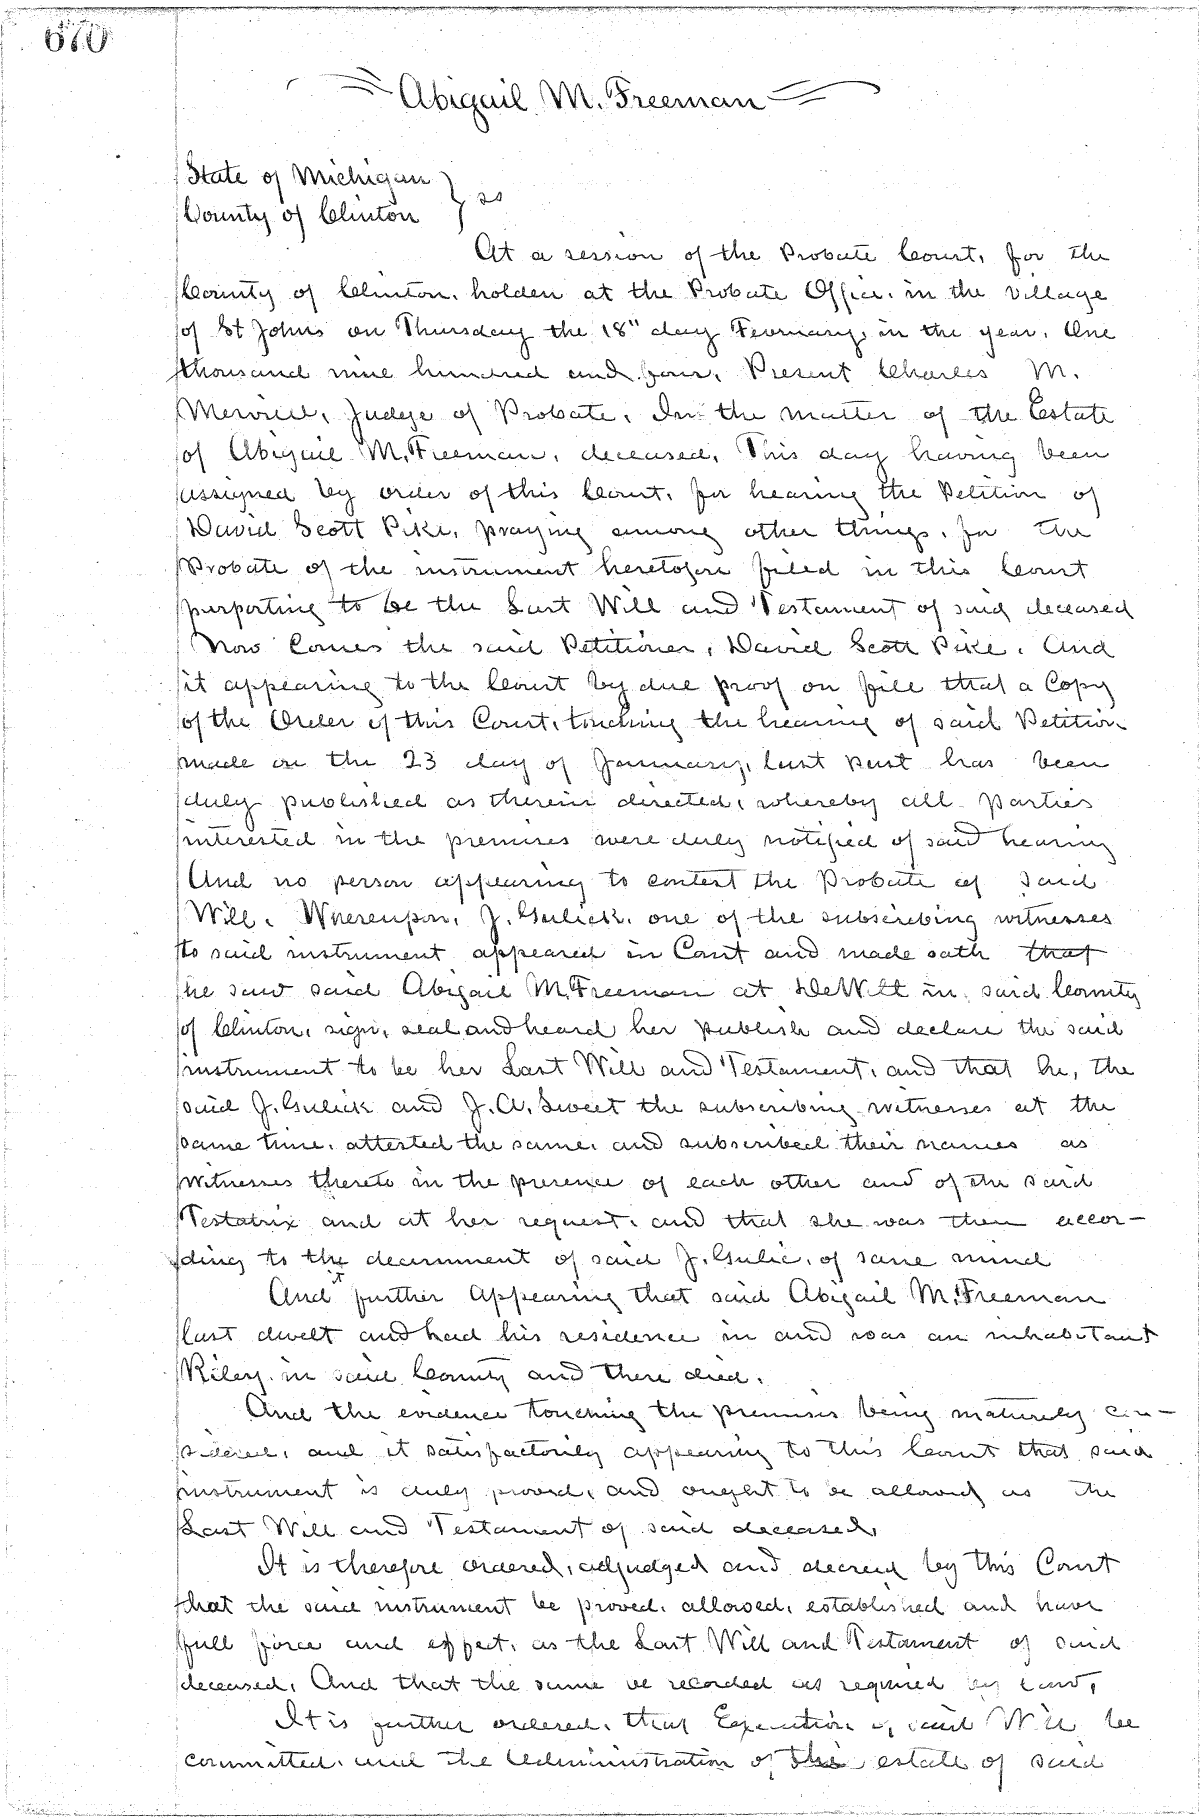 670
Abigail M. Freeman
State of Michigan } ss
County of Clinton
At a session of the Probate Court, for the
County of Clinton, holden at the Probate Office, in the village
of St Johns on Thursday the 18" day February, in the year, One
thousand nine hundred and four, Present Charles M.
Merrill, Judge of Probate, In the matter of the Estate
of Abigail M. Freeman, deceased, This day having been
assigned by order of this Court, for hearing the Petition of
David Scott Pike, praying among other things, for the
Probate of the instrument heretofore filed in this Court
purporting to be the Last Will and Testament of said deceased
Now Comes the said Petitioner, David Scott Pike. And
it appearing to the Court by due proof on file that a Copy
of the Order of this Court, touching the hearing of said Petition
made on the 23 day of January, last past has been
duly published as therein directed, whereby all parties
interested in the premises were duly notified of said hearing
And no person appearing to contest the Probate of said
Will. Whereupon, J. Gulick, one of the subscribing witnesses
to said instrument appeared in Court and made oath that
he saw said Abigail M. Freeman at DeWitt in said County
of Clinton, sign, seal and heard her publish and declare the said
instrument to be her Last Will and Testament, and that he, the
said J. Gulick and J. A. Sweet the subscribing witnesses at the
same time, attested the same, and subscribed their names as
witnesses thereto in the presence of each other and of the said
Testatrix and at her request, and that she was then accor-
ding to the decernment of said J. Gulic, of sane mind
And it further appearing that said Abigail M. Freeman
last dwelt and had his residence in and was an inhabitant
Riley in said County and there died.
And the evidence touching the premises being maturely con-
sidered, and it satisfactorily appearing to this Court that said
instrument is duly proved, and ought to be allowed as the
Last Will and Testament of said deceased,
It is therefore ordered, adjudged and decreed by this Court
that the said instrument be proved, allowed, established and have
full force and effect, as the Last Will and Testament of said
deceased, And that the same be recorded as required by Law,
It is further ordered, that Execution of said Will be
committed, and the Administration of the estate of said